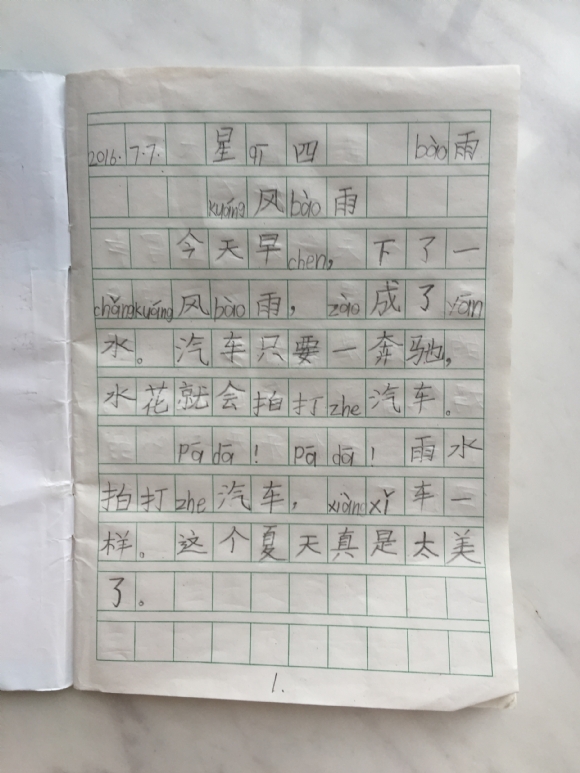 2016.7.7. 星qī四 bào雨
kuáng风bào雨
今天早chen,下了一
chǎngkuáng风bào雨,zào成了yān
水。汽车只要一奔驰,
水花就会拍打zhe汽车。
pā dā!pā dā!雨水
拍打zhe汽车,xiàngxǐ车一
样。这个夏天真是太美
了。
1.